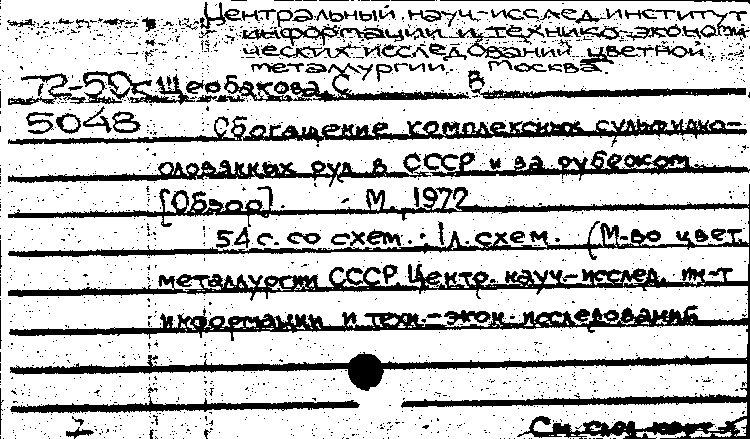 Центральный науч.-исслед. институт
информации и технико-экономи
ческих исследований цветной
металлургии. Москва.
72-50к Щербакова, С В
5048 Обогащение комплексных сульфидно-
оловянных руд в СССР и за рубежом.
[Обзор]. М., 1972
54 с. со схем.; 1 л. схем. (М-во цвет.
металлургии СССР. Центр. науч.-исслед. ин-т
информации и техн.-экон. исследований
См. след. карт.